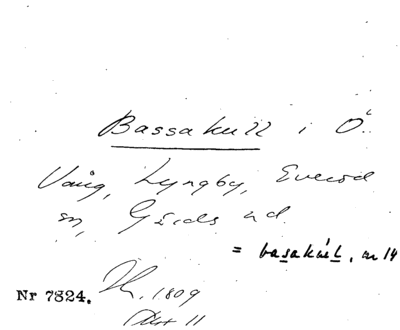 Bassakull i Ö.
Vång, Lyngby, Everöd
sn, Gärds hd.
= basakúl, nr 14
Nr 7824. 1809